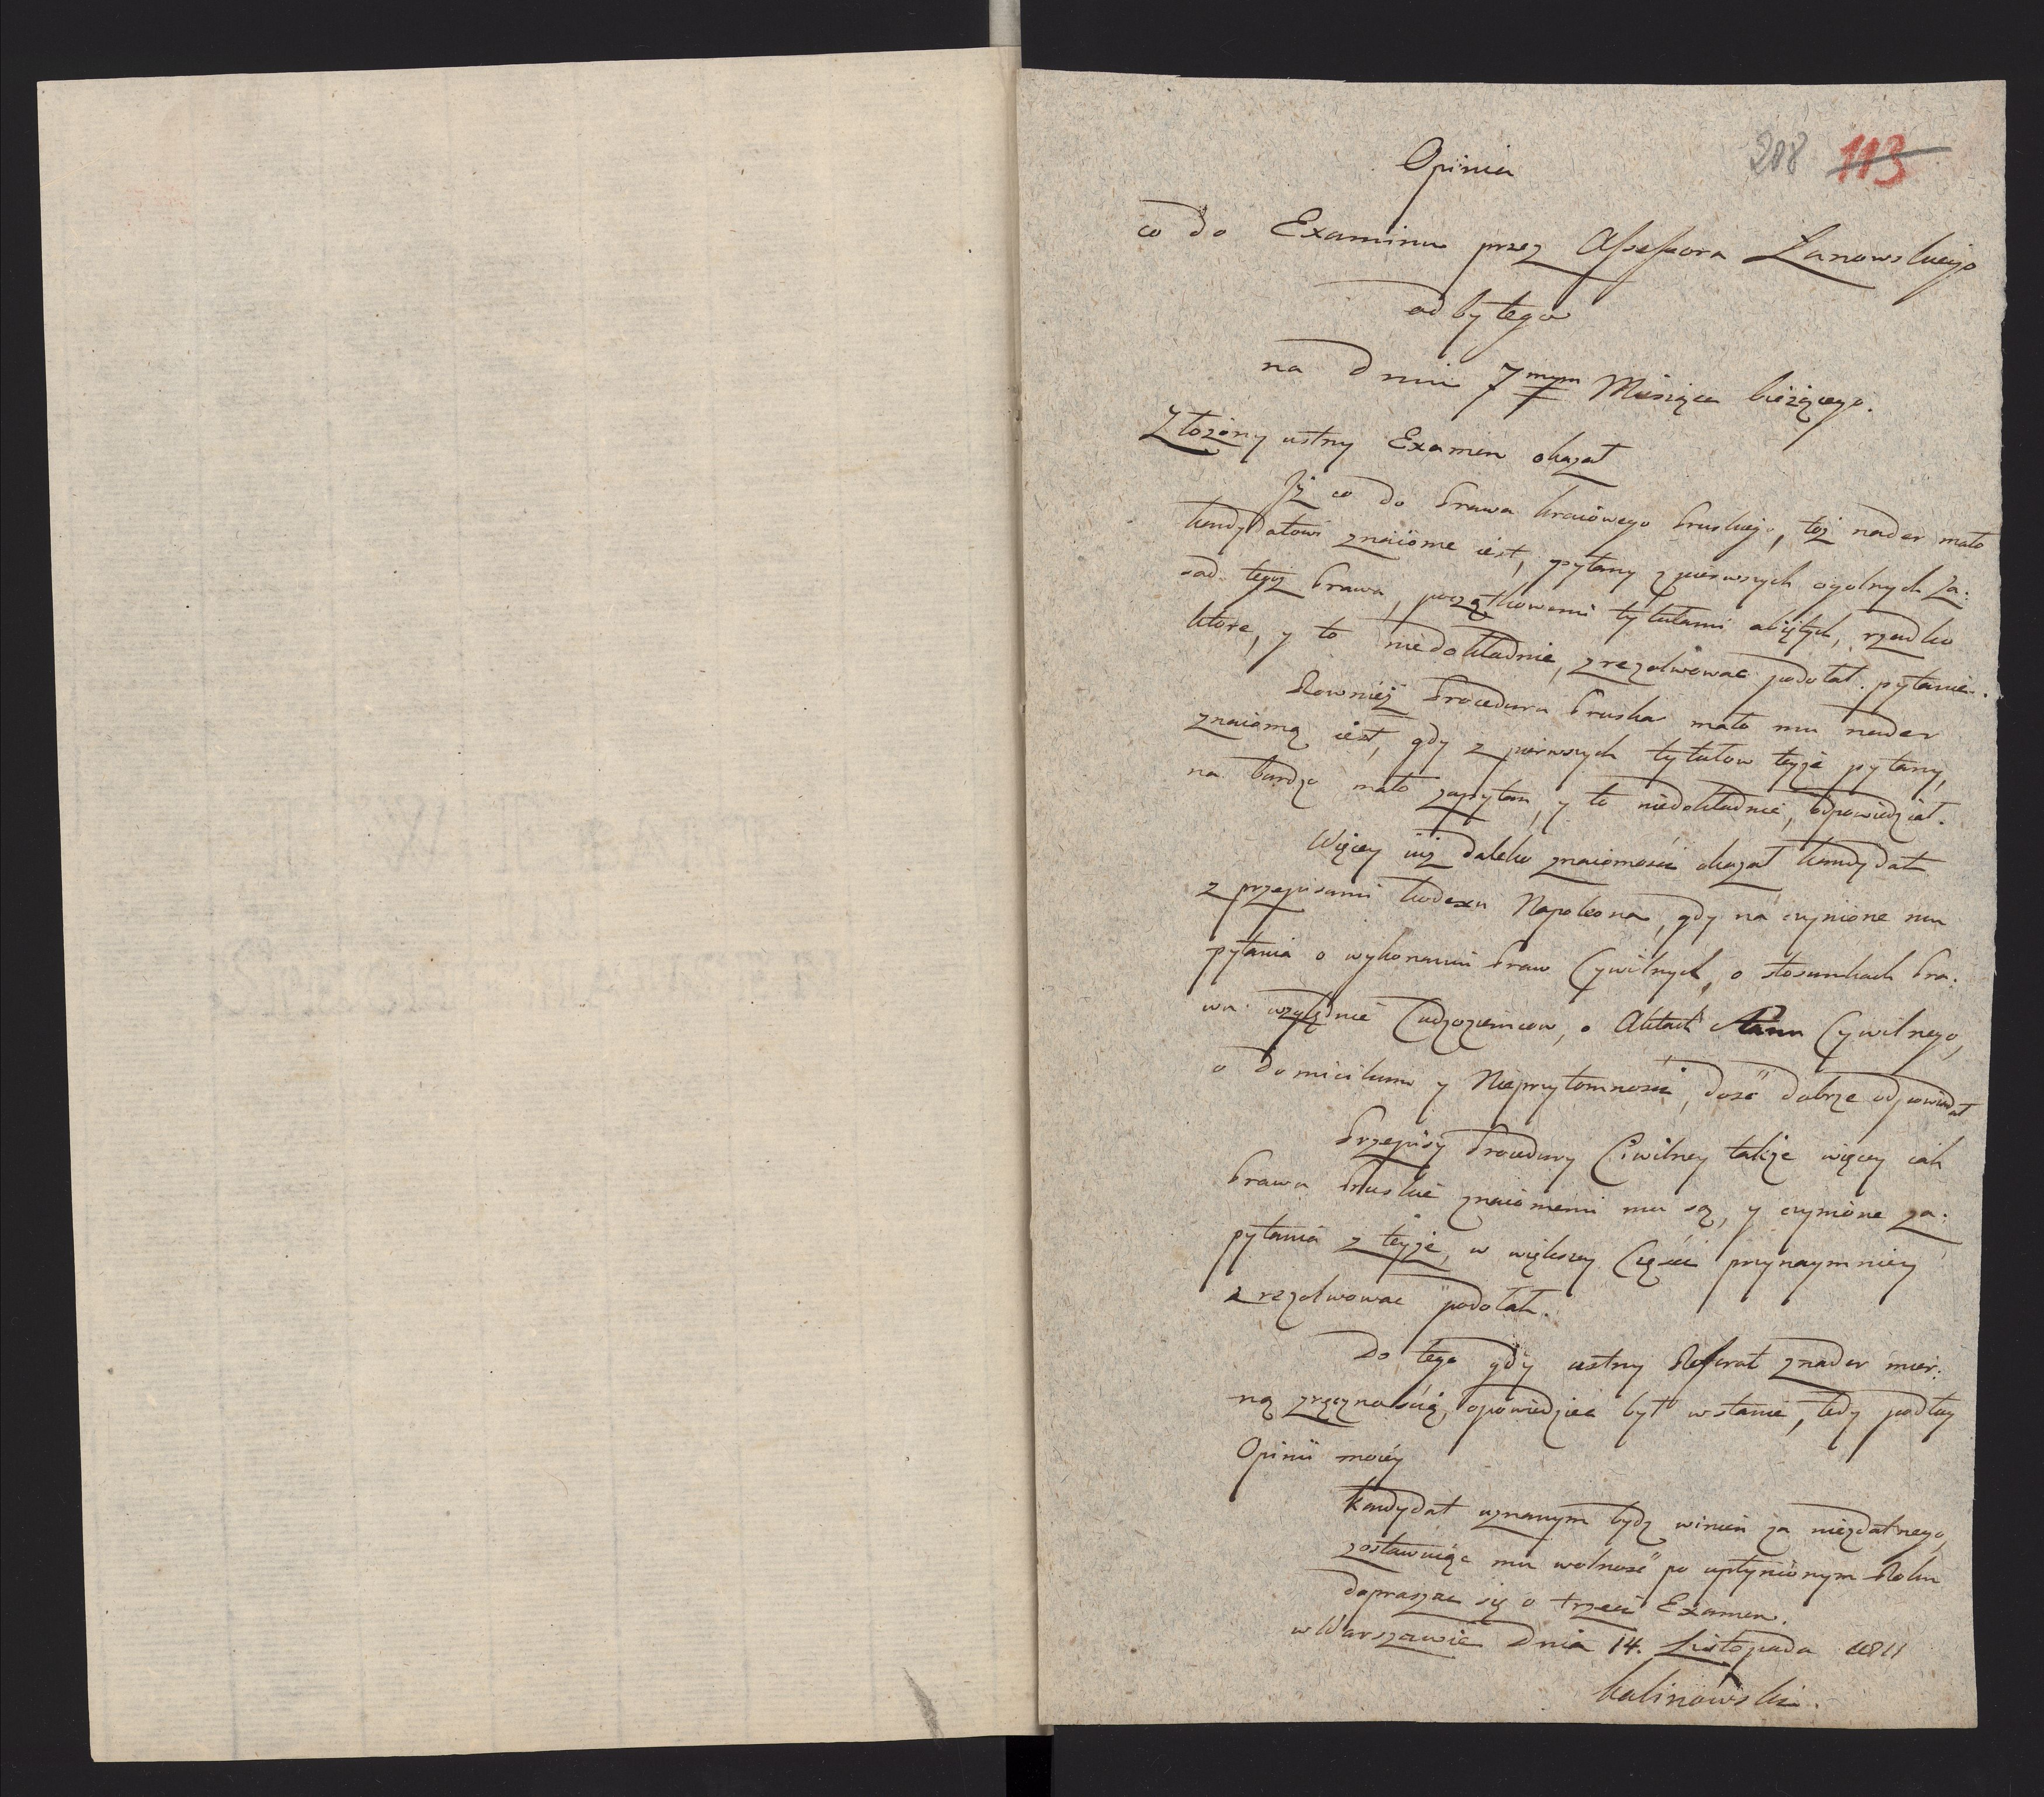 208 113
Opinia
co do Examinu przez Assessora Lanowskiego
odbytego
na Dniu 7mym Miesiąca bieżącego.
Złożony ustny Examen okazał
Jż co do Prawa kraiowego Pruskiego, toż nader mało
kandydatowi znaiome iest, pytany z pierwszych ogolnych Za:
sad tegoż Prawa, początkowemi tytułami obiętych, rzadko
ktore, y to niedokładnie, zrezolwowac podołał pytanie.
Rownież Procedura Pruska mało mu nader
znaiomą iest, gdy z pierwszych tytułow teyże pytany,
na bardzo mało zapytan, y to niedokładnie, odpowiedział.
Więcey iuż daleko znaiomości okazał kandydat
z przepisami kodexu Napoleona, gdy na czynione mu
pytania o wykonaniu Praw Cywilnych, o stosunkach Pra:
wa względnie Cudzoziemcow, o Aktach Stanu Cywilnego,
o Domicilium y Nieprzytomności, dość dobrze odpowiadał
Przepisy Procedury Ciwilney także więcey iak
Prawa Pruskie znaiomemi mu są, y czynione za:
pytania z teyże, w większey Części przynaymniey
zrezolwowac podołał.
Do tego gdy ustny Referat znader mier:
ną zręcznością, opowiedziec był wstanie, tedy podług
Opinii moiey
kandydat uznanym bydź winien za niezdatnego,
zostawuiąc mu wolność po upłynionym Roku
dopraszac się o trzeci Examen.
w Warszawie Dnia 14. Listopada 1811
Kalinowski.